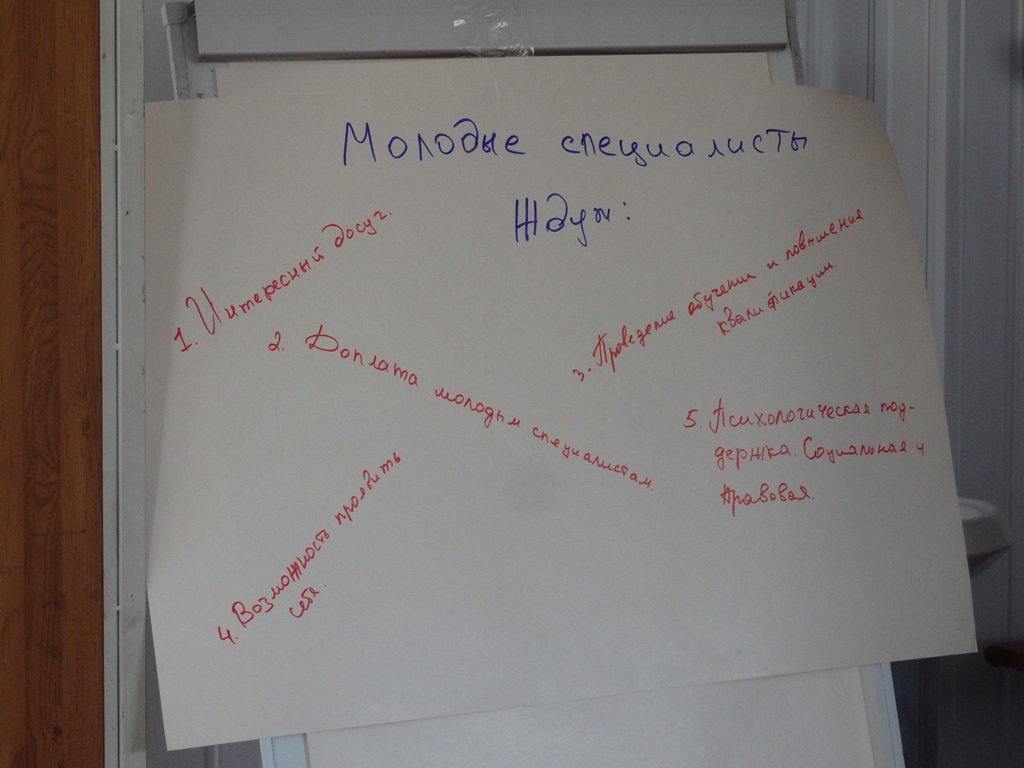 Молодые специалисты
Ждут:
1. Интересный досуг.
2. Доплата молодым специалистам.
3. Проведение обучении и повышения
квалификации.
4. Возможность проявить
себя.
5. Психологическая под-
держка. Социальная и
правовая.